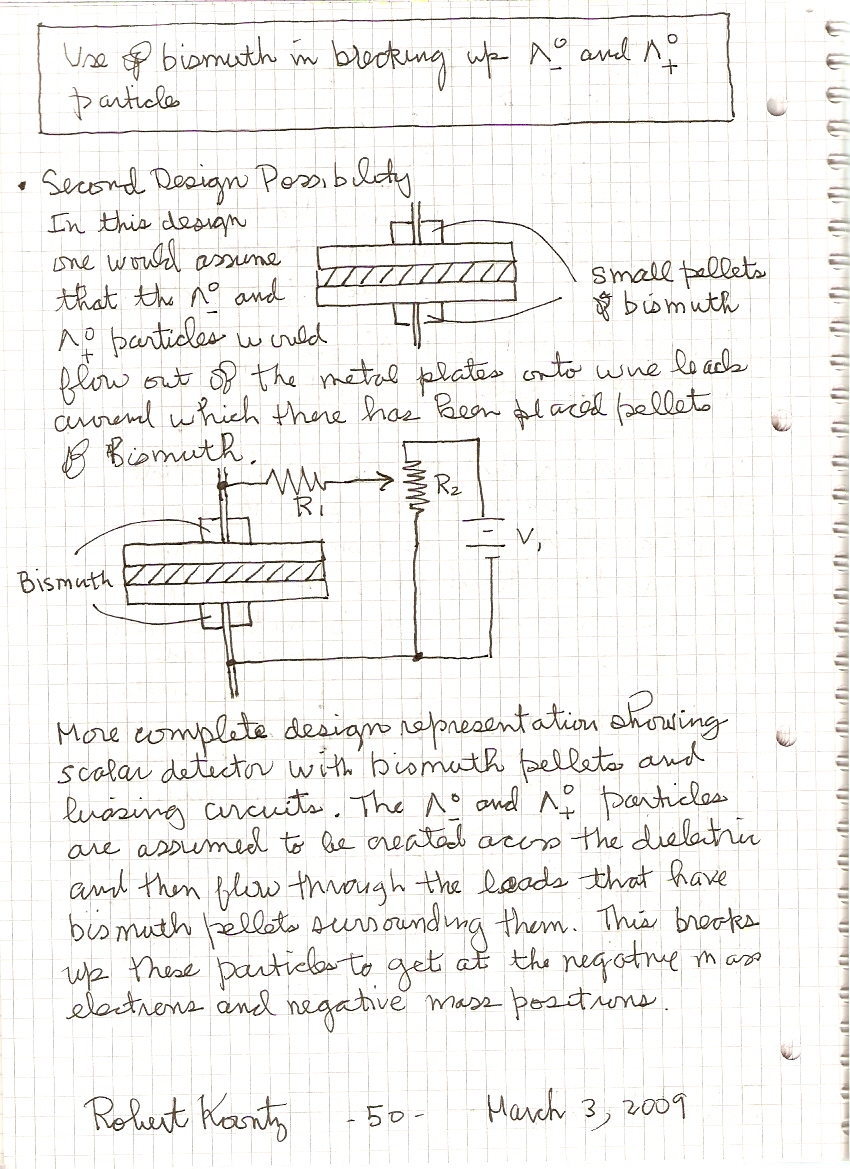 Use of bismuth in breaking up Λ⁰₋ and Λ⁰₊
particles
• Second Design Possibility
In this design
one would assume
that the Λ⁰₋ and
Λ⁰₊ particles would
flow out of the metal plates onto wire leads
around which there has been placed pellets
of Bismuth.
small pellets
of bismuth
R₁
R₂
V₁
Bismuth
More complete design representation showing
scalar detector with bismuth pellets and
biasing circuits. The Λ⁰₋ and Λ⁰₊ particles
are assumed to be created across the dielectric
and then flow through the leads that have
bismuth pellets surrounding them. This breaks
up these particles to get at the negative mass
electrons and negative mass positrons.
Robert -50- March 3, 2009